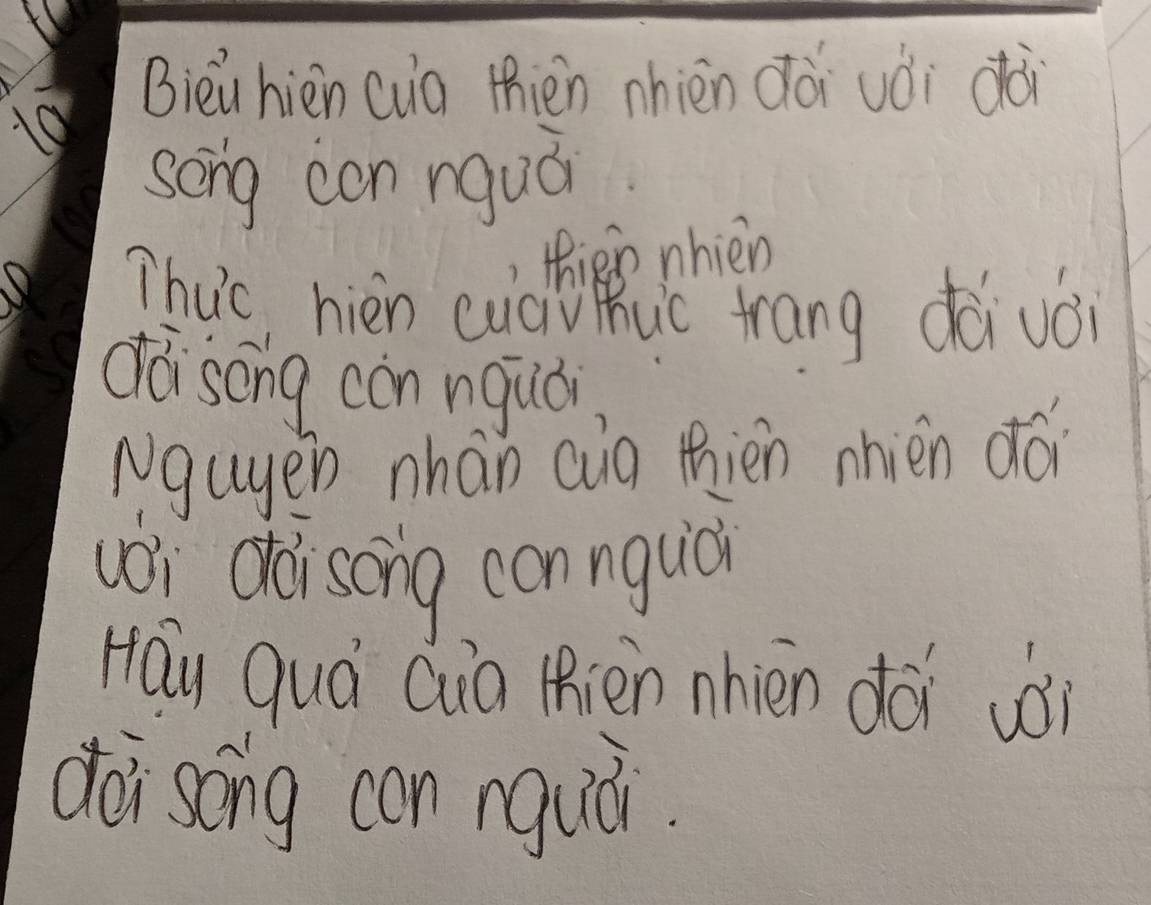 Biểu hiện của thiên nhiên đối với đời
sống con người.
thiên nhiên
Thực hiện của v thực trạng đối với
đời sống con người
Nguyên nhân của thiên nhiên đối
với đời sống con người
Hậu quả của thiên nhiên đối với
đời sống con người.
là